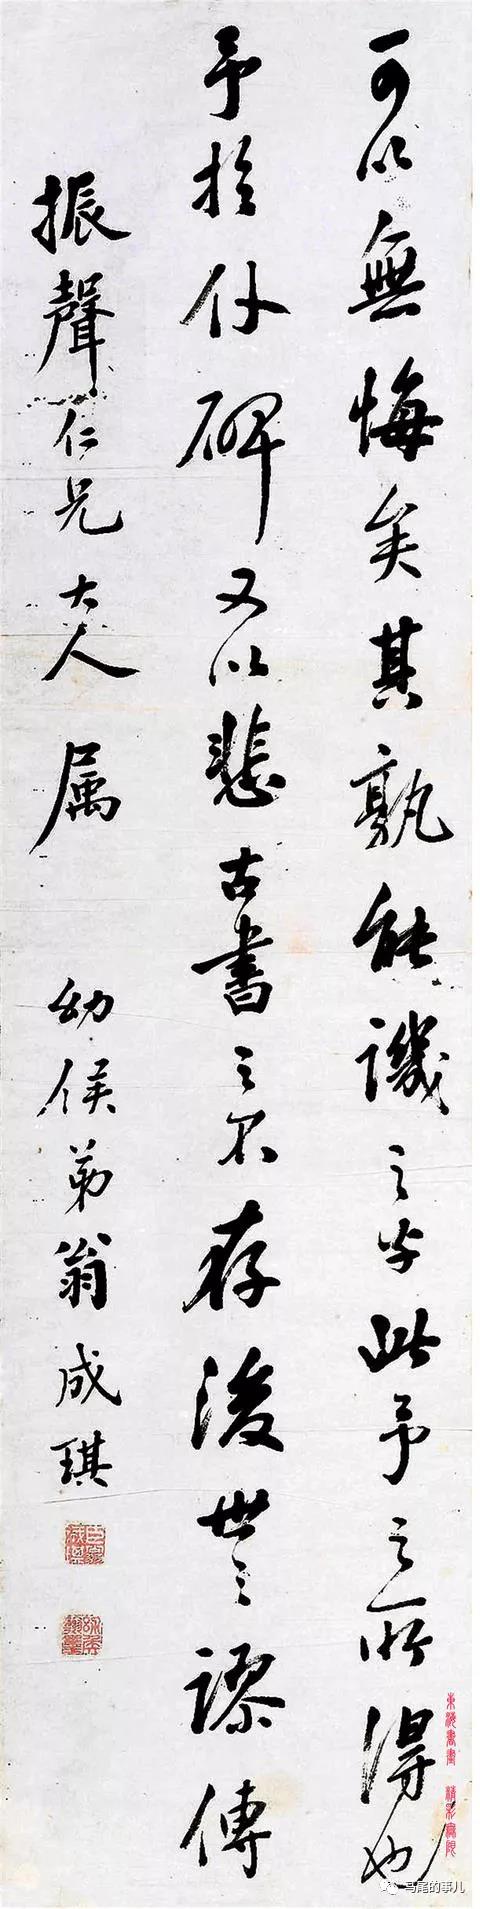 可以無悔矣其孰能譏之乎此予之所得也
予於仆碑又以悲古書之不存後世之謬傳
振聲仁兄大人属 幼侯弟翁成琪
東海書畫 精彩無限
马尾的事儿